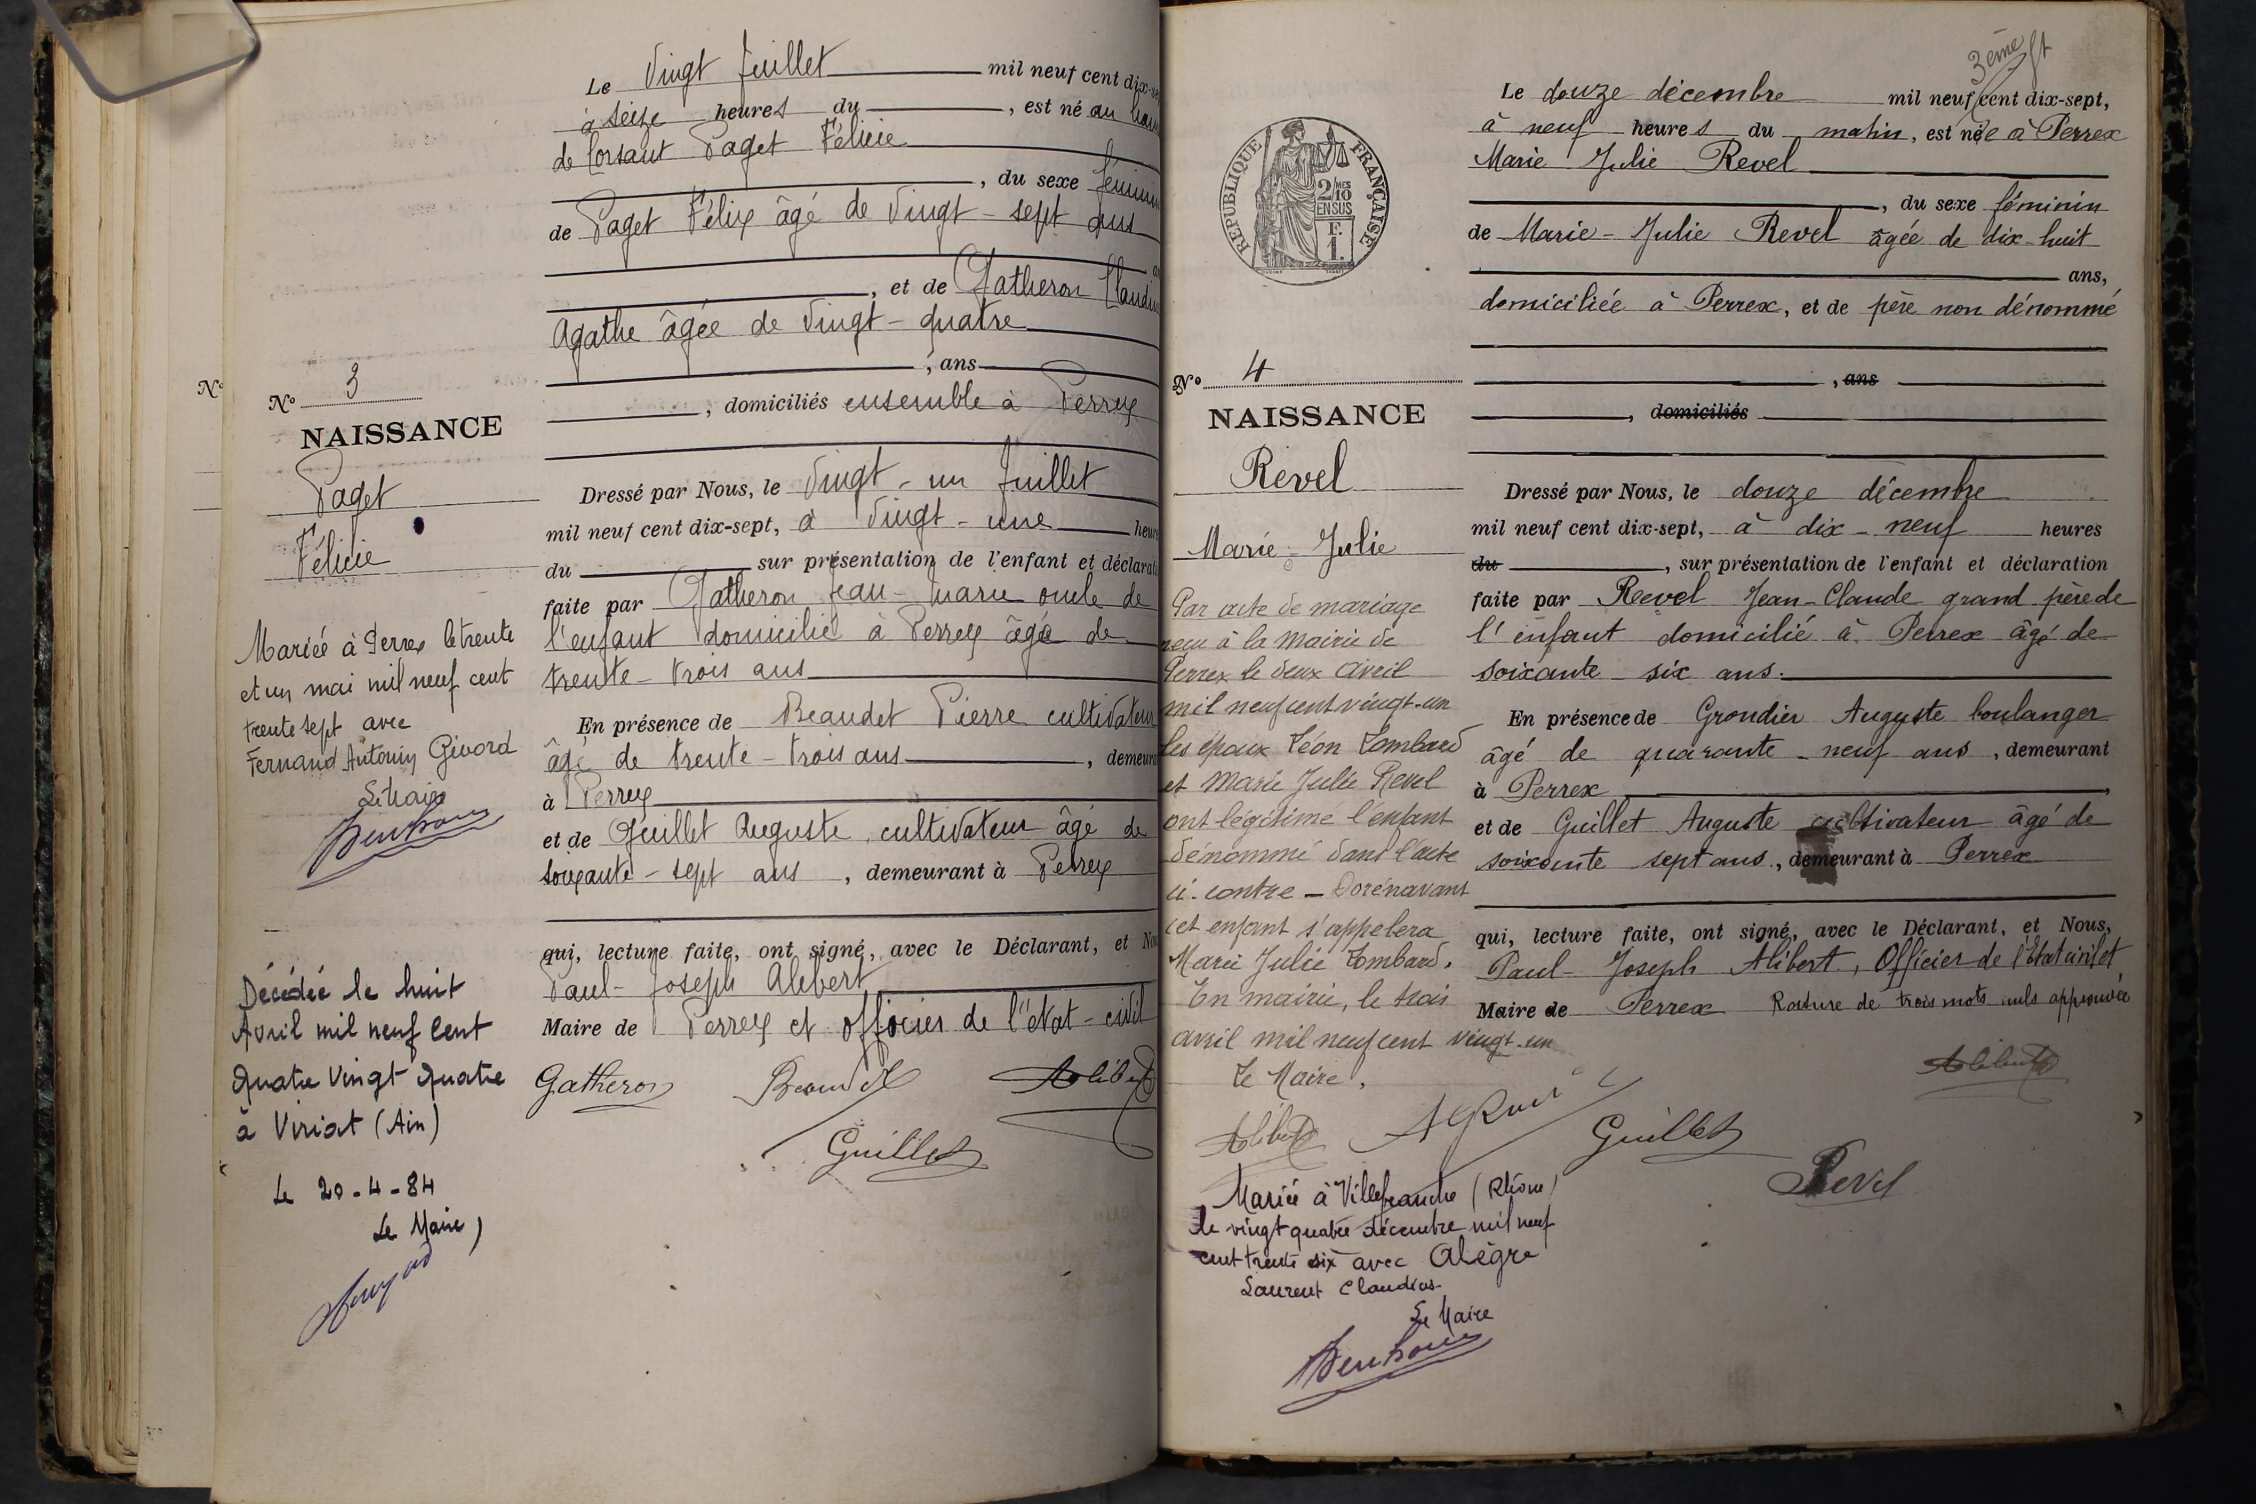 Le vingt Juillet mil neuf cent dix-
à seize heures du , est né au
de Corsant Paget Félicie
, du sexe féminin
de Paget Félix âgé de vingt-sept ans
, et de Gatheron
Agathe âgée de vingt-quatre
, ans
, domiciliés ensemble à Perrex
N°
N° 3
NAISSANCE
Paget
Félicie
Dressé par Nous, le vingt-un Juillet
mil neuf cent dix-sept, à vingt-une
du sur présentation de l'enfant et
faite par Gatheron Jean-Marie oncle de
l'enfant domicilié à Perrex âgé de
trente-trois ans
En présence de Beaudet Pierre cultivateur
âgé de trente-trois ans ,
à Perrex
et de Guillet Auguste, cultivateur âgé de
soixante-sept ans , demeurant à Perrex
qui, lecture faite, ont signé, avec le Déclarant, et
Paul-Joseph Alibert
Maire de Perrex et officier de l'état-civil
Gatheron Beaudet Alibert
Guillet
Mariée à Perrex le trente
et un mai mil neuf cent
trente sept avec
Fernand Antonin Givord
Le Maire
Décédée le huit
Avril mil neuf cent
quatre vingt quatre
à Viriat (Ain)
Le 20-4-84
Le Maire,
3ème
Le douze décembre mil neuf cent dix-sept,
à neuf heures du matin, est née à Perrex
Marie Julie Revel
, du sexe féminin
de Marie-Julie Revel âgée de dix-huit
ans,
domiciliée à Perrex, et de père non dénommé
, ans
, domiciliés
RÉPUBLIQUE FRANÇAISE
2/10
MES
EN SUS
F.
1.
N° 4
NAISSANCE
Revel
Marie-Julie
Dressé par Nous, le douze décembre
mil neuf cent dix-sept, à dix-neuf heures
du , sur présentation de l'enfant et déclaration
faite par Revel Jean-Claude grand père de
l'enfant domicilié à Perrex âgé de
soixante six ans.
En présence de Grondier Auguste boulanger
âgé de quarante-neuf ans, demeurant
à Perrex ,
et de Guillet Auguste cultivateur âgé de
soixante sept ans, demeurant à Perrex
qui, lecture faite, ont signé, avec le Déclarant, et Nous,
Paul-Joseph Alibert, Officier de l'Etat civil et
Maire de Perrex Rature de trois mots nuls approuvée
Alibert
Guillet
Revel
Par acte de mariage
reçu à la Mairie de
Perrex le deux Avril
mil neuf cent vingt-un
les époux Léon Lombard
et Marie Julie Revel
ont légitimé l'enfant
dénommé dans l'acte
ci-contre - Dorénavant
cet enfant s'appelera
Marie Julie Lombard.
En mairie, le trois
avril mil neuf cent vingt-un
Le Maire,
Alibert
Mariée à Villefranche (Rhône)
le vingt quatre décembre mil neuf
cent trente six avec Alègre
Laurent Claudius
Le Maire